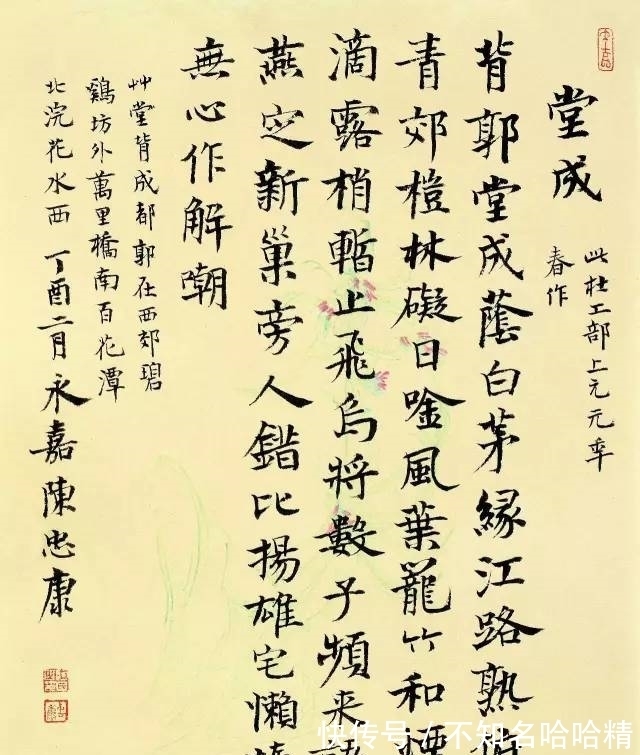 堂成
此杜工部上元元年
春作
背郭堂成蔭白茅緣江路熟
青郊榿林礙日唫風葉籠竹和
滴露梢暫止飛烏將數子頻来
燕定新巢旁人錯比揚雄宅懶
無心作解嘲
艸堂背成都郭在西郊碧
鷄坊外萬里橋南百花潭
北浣花水西 丁酉二月永嘉陳忠康
快传号 / 不知名哈哈精